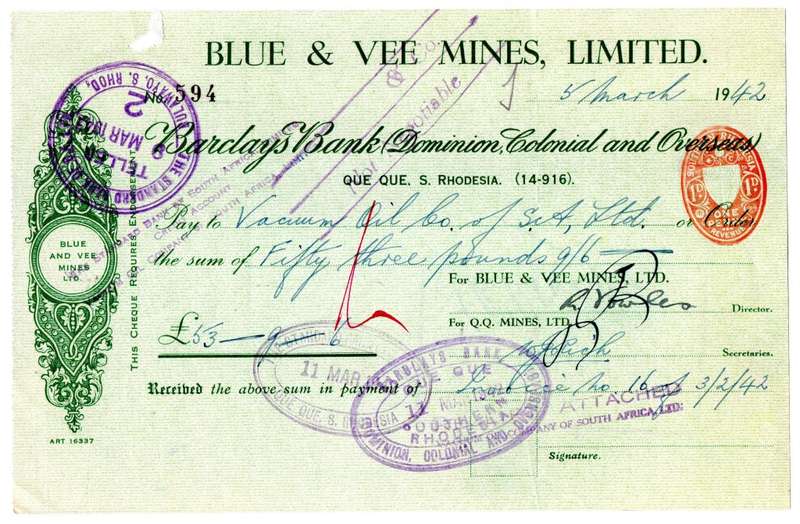 BLUE & VEE MINES, LIMITED.
No. 594
5 March 1942
& Co.
Not Negotiable
Barclays Bank (Dominion, Colonial and Overseas)
QUE QUE, S. RHODESIA. (14-916).
Pay to Vacuum Oil Co. of S.A. Ltd. or Order
the sum of Fifty three pounds 9/6
For BLUE & VEE MINES, LTD.
Director.
£53 - 9 - 6
For Q.Q. MINES, LTD.
Secretaries.
Received the above sum in payment of Invoice No 16 of 3/2/42
Signature.
BLUE
AND VEE
MINES
LTD.
THIS CHEQUE REQUIRES ENDORSEMENT
ART 16337
THE STANDARD BANK OF
BULAWAYO, S. RHOD.
2
9 MAR 19
TELLER
STANDARD BANK OF SOUTH AFRICA
ACCOUNT
SOUTH AFRICA LIMITED
SOUTHERN RHODESIA
1D 1D
ONE
REVENUE
11 MAR
QUE QUE, S. RHODESIA
BARCLAYS BANK
QUE QUE
11
SOUTHERN
RHODESIA
DOMINION, COLONIAL AND OVERSEAS
ATTACHED
COMPANY OF SOUTH AFRICA, LTD.